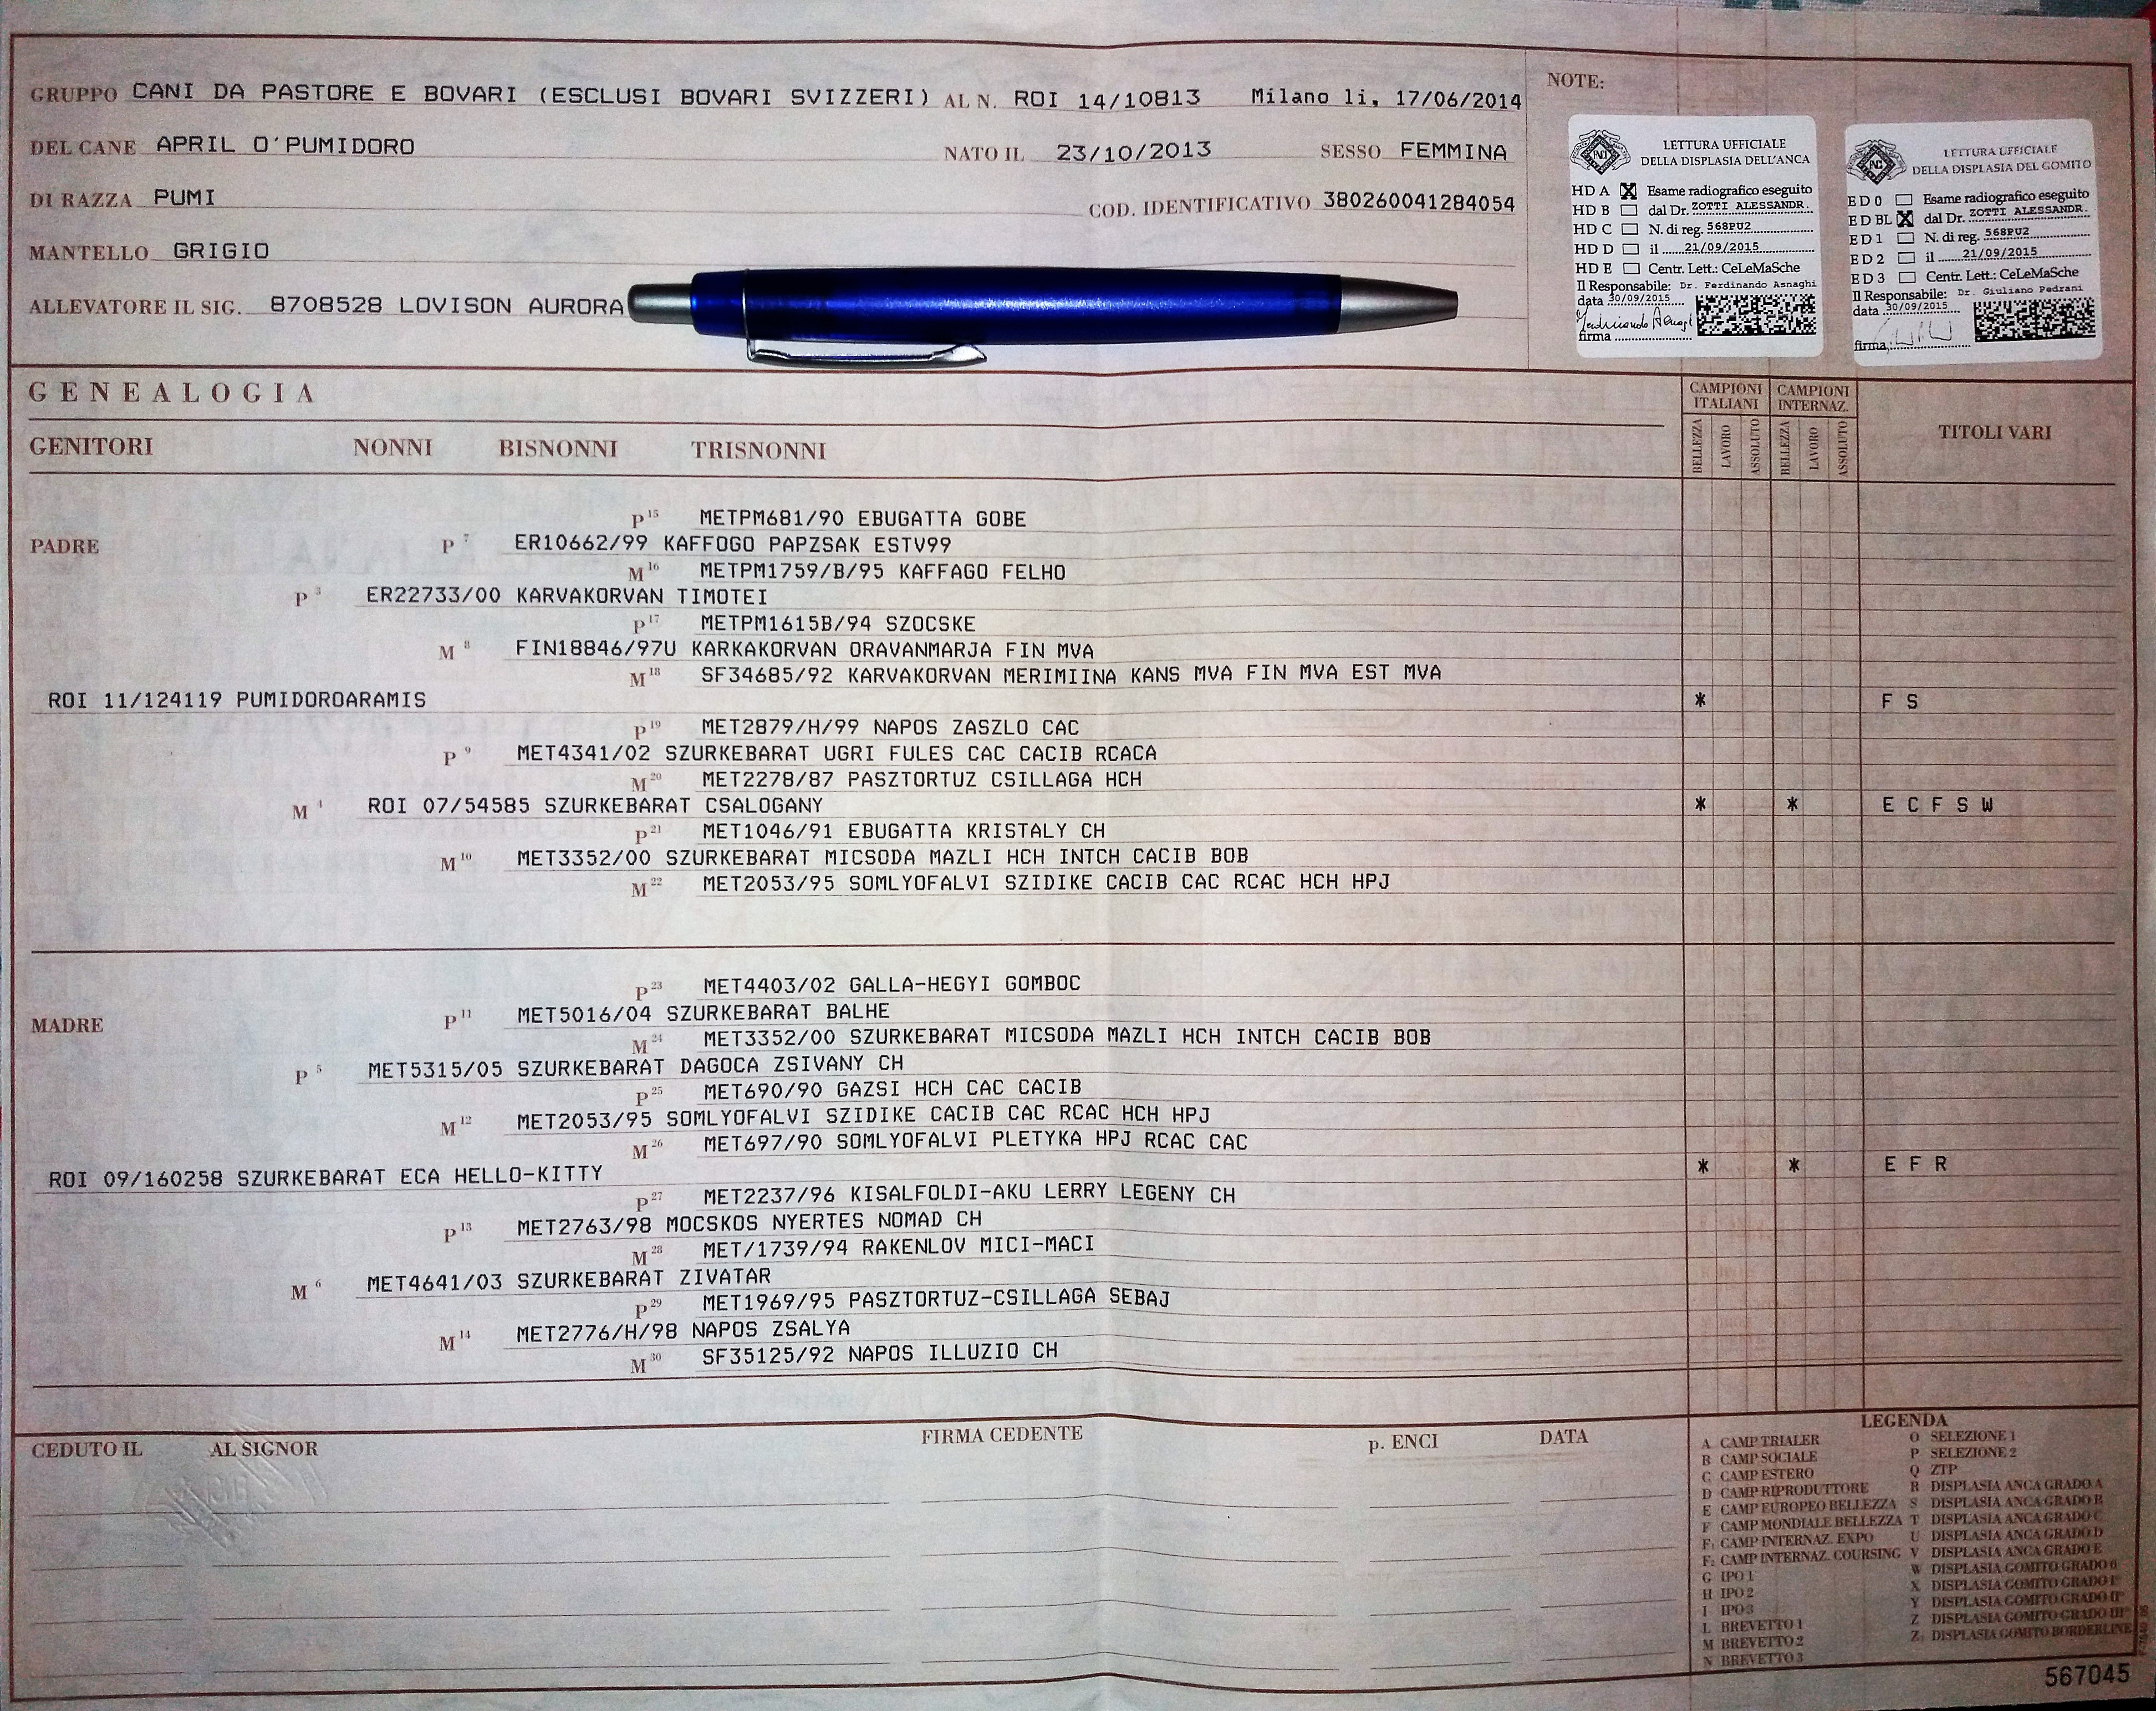 GRUPPO CANI DA PASTORE E BOVARI (ESCLUSI BOVARI SVIZZERI) AL N. ROI 14/10813 Milano li, 17/06/2014
DEL CANE APRIL O'PUMIDORO NATO IL 23/10/2013 SESSO FEMMINA
DI RAZZA PUMI COD. IDENTIFICATIVO 380260041284054
MANTELLO GRIGIO
ALLEVATORE IL SIG. 8708528 LOVISON AURORA
NOTE:
LETTURA UFFICIALE
DELLA DISPLASIA DELL'ANCA
HD A X Esame radiografico eseguito
HD B dal Dr. ZOTTI ALESSANDR.
HD C N. di reg. 568PU2
HD D il 21/09/2015
HD E Centr. Lett.: CeLeMaSche
Il Responsabile: Dr. Ferdinando Asnaghi
data 30/09/2015
firma
LETTURA UFFICIALE
DELLA DISPLASIA DEL GOMITO
ED 0 Esame radiografico eseguito
ED BL X dal Dr. ZOTTI ALESSANDR.
ED 1 N. di reg. 568PU2
ED 2 il 21/09/2015
ED 3 Centr. Lett.: CeLeMaSche
Il Responsabile: Dr. Giuliano Pedrani
data 30/09/2015
firma
GENEALOGIA
GENITORI NONNI BISNONNI TRISNONNI
CAMPIONI ITALIANI
CAMPIONI INTERNAZ.
BELLEZZA LAVORO ASSOLUTO BELLEZZA LAVORO ASSOLUTO
TITOLI VARI
P 15 METPM681/90 EBUGATTA GOBE
PADRE P 7 ER10662/99 KAFFOGO PAPZSAK ESTV99
M 16 METPM1759/B/95 KAFFAGO FELHO
P 3 ER22733/00 KARVAKORVAN TIMOTEI
P 17 METPM1615B/94 SZOCSKE
M 8 FIN18846/97U KARKAKORVAN ORAVANMARJA FIN MVA
M 18 SF34685/92 KARVAKORVAN MERIMIINA KANS MVA FIN MVA EST MVA
ROI 11/124119 PUMIDOROARAMIS * F S
P 19 MET2879/H/99 NAPOS ZASZLO CAC
P 9 MET4341/02 SZURKEBARAT UGRI FULES CAC CACIB RCACA
M 20 MET2278/87 PASZTORTUZ CSILLAGA HCH
M 4 ROI 07/54585 SZURKEBARAT CSALOGANY * * E C F S W
P 21 MET1046/91 EBUGATTA KRISTALY CH
M 10 MET3352/00 SZURKEBARAT MICSODA MAZLI HCH INTCH CACIB BOB
M 22 MET2053/95 SOMLYOFALVI SZIDIKE CACIB CAC RCAC HCH HPJ
P 23 MET4403/02 GALLA-HEGYI GOMBOC
MADRE P 11 MET5016/04 SZURKEBARAT BALHE
M 24 MET3352/00 SZURKEBARAT MICSODA MAZLI HCH INTCH CACIB BOB
P 5 MET5315/05 SZURKEBARAT DAGOCA ZSIVANY CH
P 25 MET690/90 GAZSI HCH CAC CACIB
M 12 MET2053/95 SOMLYOFALVI SZIDIKE CACIB CAC RCAC HCH HPJ
M 26 MET697/90 SOMLYOFALVI PLETYKA HPJ RCAC CAC
ROI 09/160258 SZURKEBARAT ECA HELLO-KITTY * * E F R
P 27 MET2237/96 KISALFOLDI-AKU LERRY LEGENY CH
P 13 MET2763/98 MOCSKOS NYERTES NOMAD CH
M 28 MET/1739/94 RAKENLOV MICI-MACI
M 6 MET4641/03 SZURKEBARAT ZIVATAR
P 29 MET1969/95 PASZTORTUZ-CSILLAGA SEBAJ
M 14 MET2776/H/98 NAPOS ZSALYA
M 30 SF35125/92 NAPOS ILLUZIO CH
CEDUTO IL AL SIGNOR FIRMA CEDENTE p. ENCI DATA
LEGENDA
A CAMP TRIALER
B CAMP SOCIALE
C CAMP ESTERO
D CAMP RIPRODUTTORE
E CAMP EUROPEO BELLEZZA
F CAMP MONDIALE BELLEZZA
F1 CAMP INTERNAZ. EXPO
F2 CAMP INTERNAZ. COURSING
G IPO 1
H IPO 2
I IPO 3
L BREVETTO 1
M BREVETTO 2
N BREVETTO 3
O SELEZIONE 1
P SELEZIONE 2
Q ZTP
R DISPLASIA ANCA GRADO A
S DISPLASIA ANCA GRADO B
T DISPLASIA ANCA GRADO C
U DISPLASIA ANCA GRADO D
V DISPLASIA ANCA GRADO E
W DISPLASIA GOMITO GRADO 0
X DISPLASIA GOMITO GRADO I°
Y DISPLASIA GOMITO GRADO II°
Z DISPLASIA GOMITO GRADO III°
Z1 DISPLASIA GOMITO BORDERLINE
567045